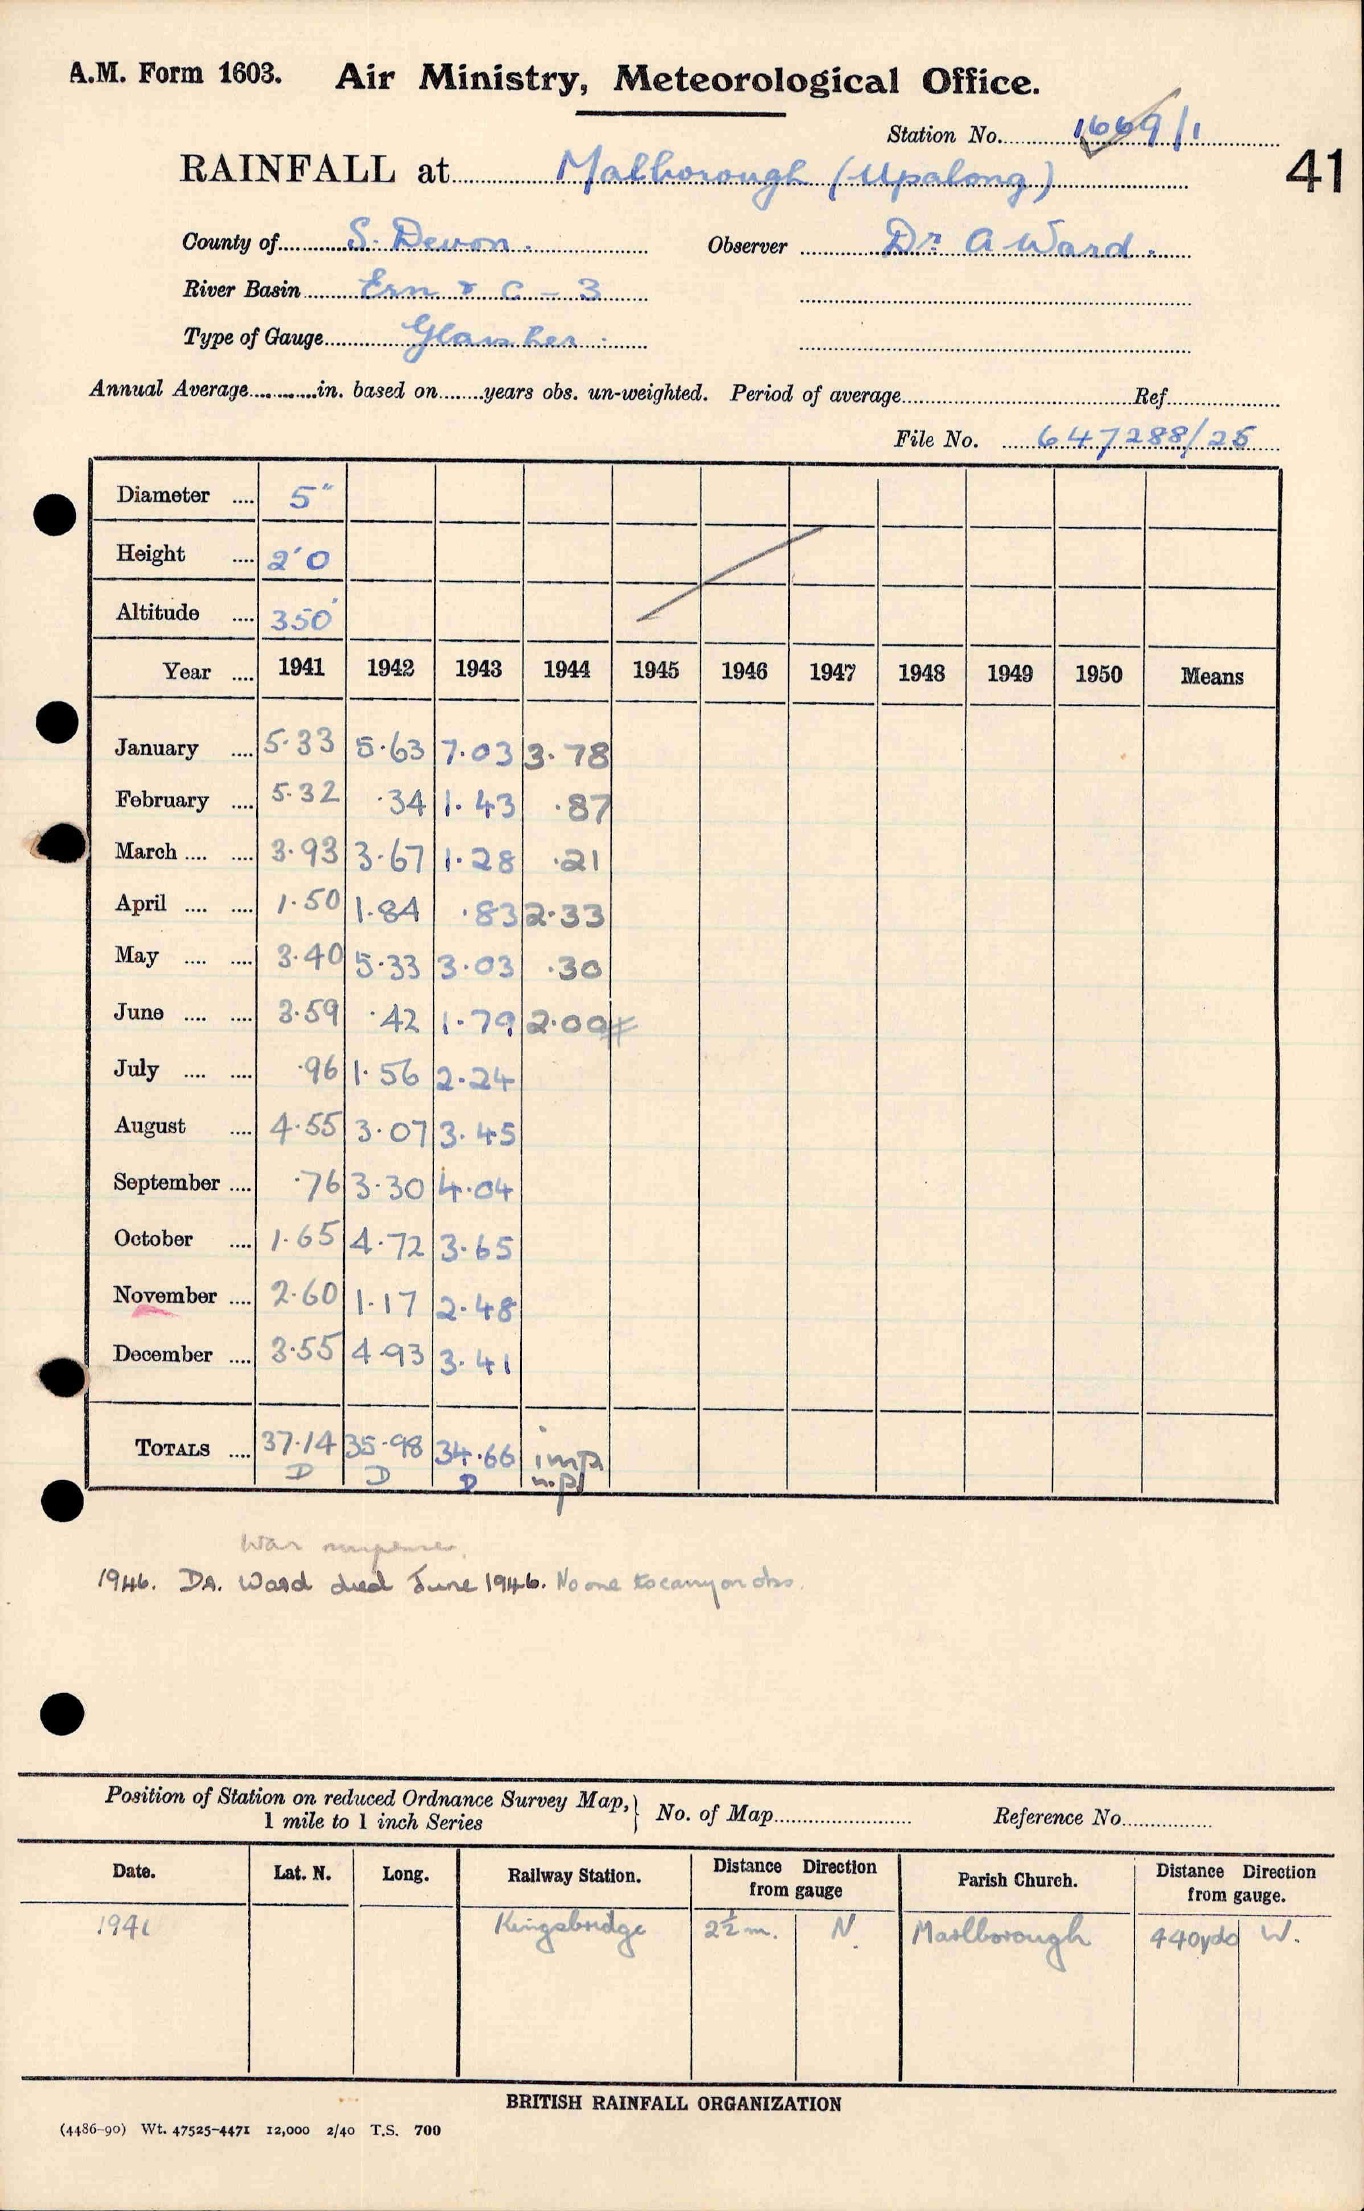 A.M. Form 1603. Air Ministry, Meteorological Office.
Station No. 1669/1
41
RAINFALL at Malborough (Upalong)
County of S. Devon. Observer Dr. A Ward.
River Basin Erm & C - 3
Type of Gauge Glaisher.
Annual Average............in. based on........years obs. un-weighted. Period of average............ Ref............
File No. 647288/25
Diameter .... 5"
Height .... 2'0
Altitude .... 350'
Year .... 1941 1942 1943 1944 1945 1946 1947 1948 1949 1950 Means
January .... 5.33 5.63 7.03 3.78
February .... 5.32 .34 1.43 .87
March .... .... 3.93 3.67 1.28 .21
April .... .... 1.50 1.84 .83 2.33
May .... .... 3.40 5.33 3.03 .30
June .... .... 3.59 .42 1.79 2.00#
July .... .... .96 1.56 2.24
August .... 4.55 3.07 3.45
September .... .76 3.30 4.04
October .... 1.65 4.72 3.65
November .... 2.60 1.17 2.48
December .... 3.55 4.93 3.41
TOTALS .... 37.14 35.98 34.66 imp
D D D n.p
War
1946. Dr. Ward died June 1946. No one to carry on obs.
Position of Station on reduced Ordnance Survey Map, } No. of Map............ Reference No............
1 mile to 1 inch Series
Date. Lat. N. Long. Railway Station. Distance Direction from gauge Parish Church. Distance Direction from gauge.
1941 Kingsbridge 2½ m. N. Marlborough 440yds W.
BRITISH RAINFALL ORGANIZATION
(4486-90) Wt. 47525-4471 12,000 2/40 T.S. 700